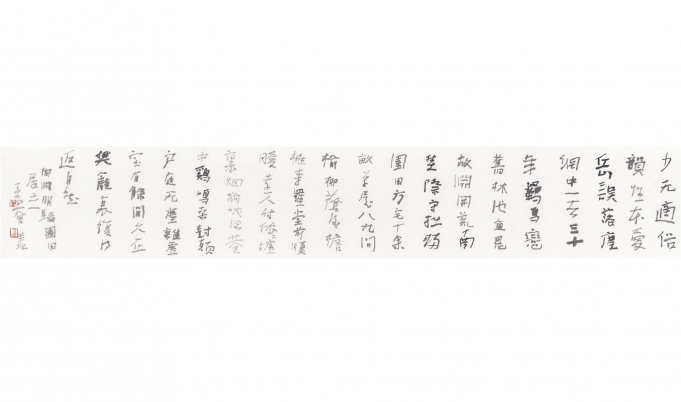 少无適俗
韻性本愛
岳誤落塵
網中一去三十
年羈鳥戀
舊林池魚思
故淵開荒南
野際守拙歸
園田方宅十余
畝草屋八九間
榆柳蔭後檐
桃李羅堂前曖
曖遠人村依依墟
裏烟狗吠深巷
中鷄鳴桑樹顛
户庭无塵雜虛
室有餘閒久在
樊籠裏復得
返自然
陶淵明歸園田
居之一